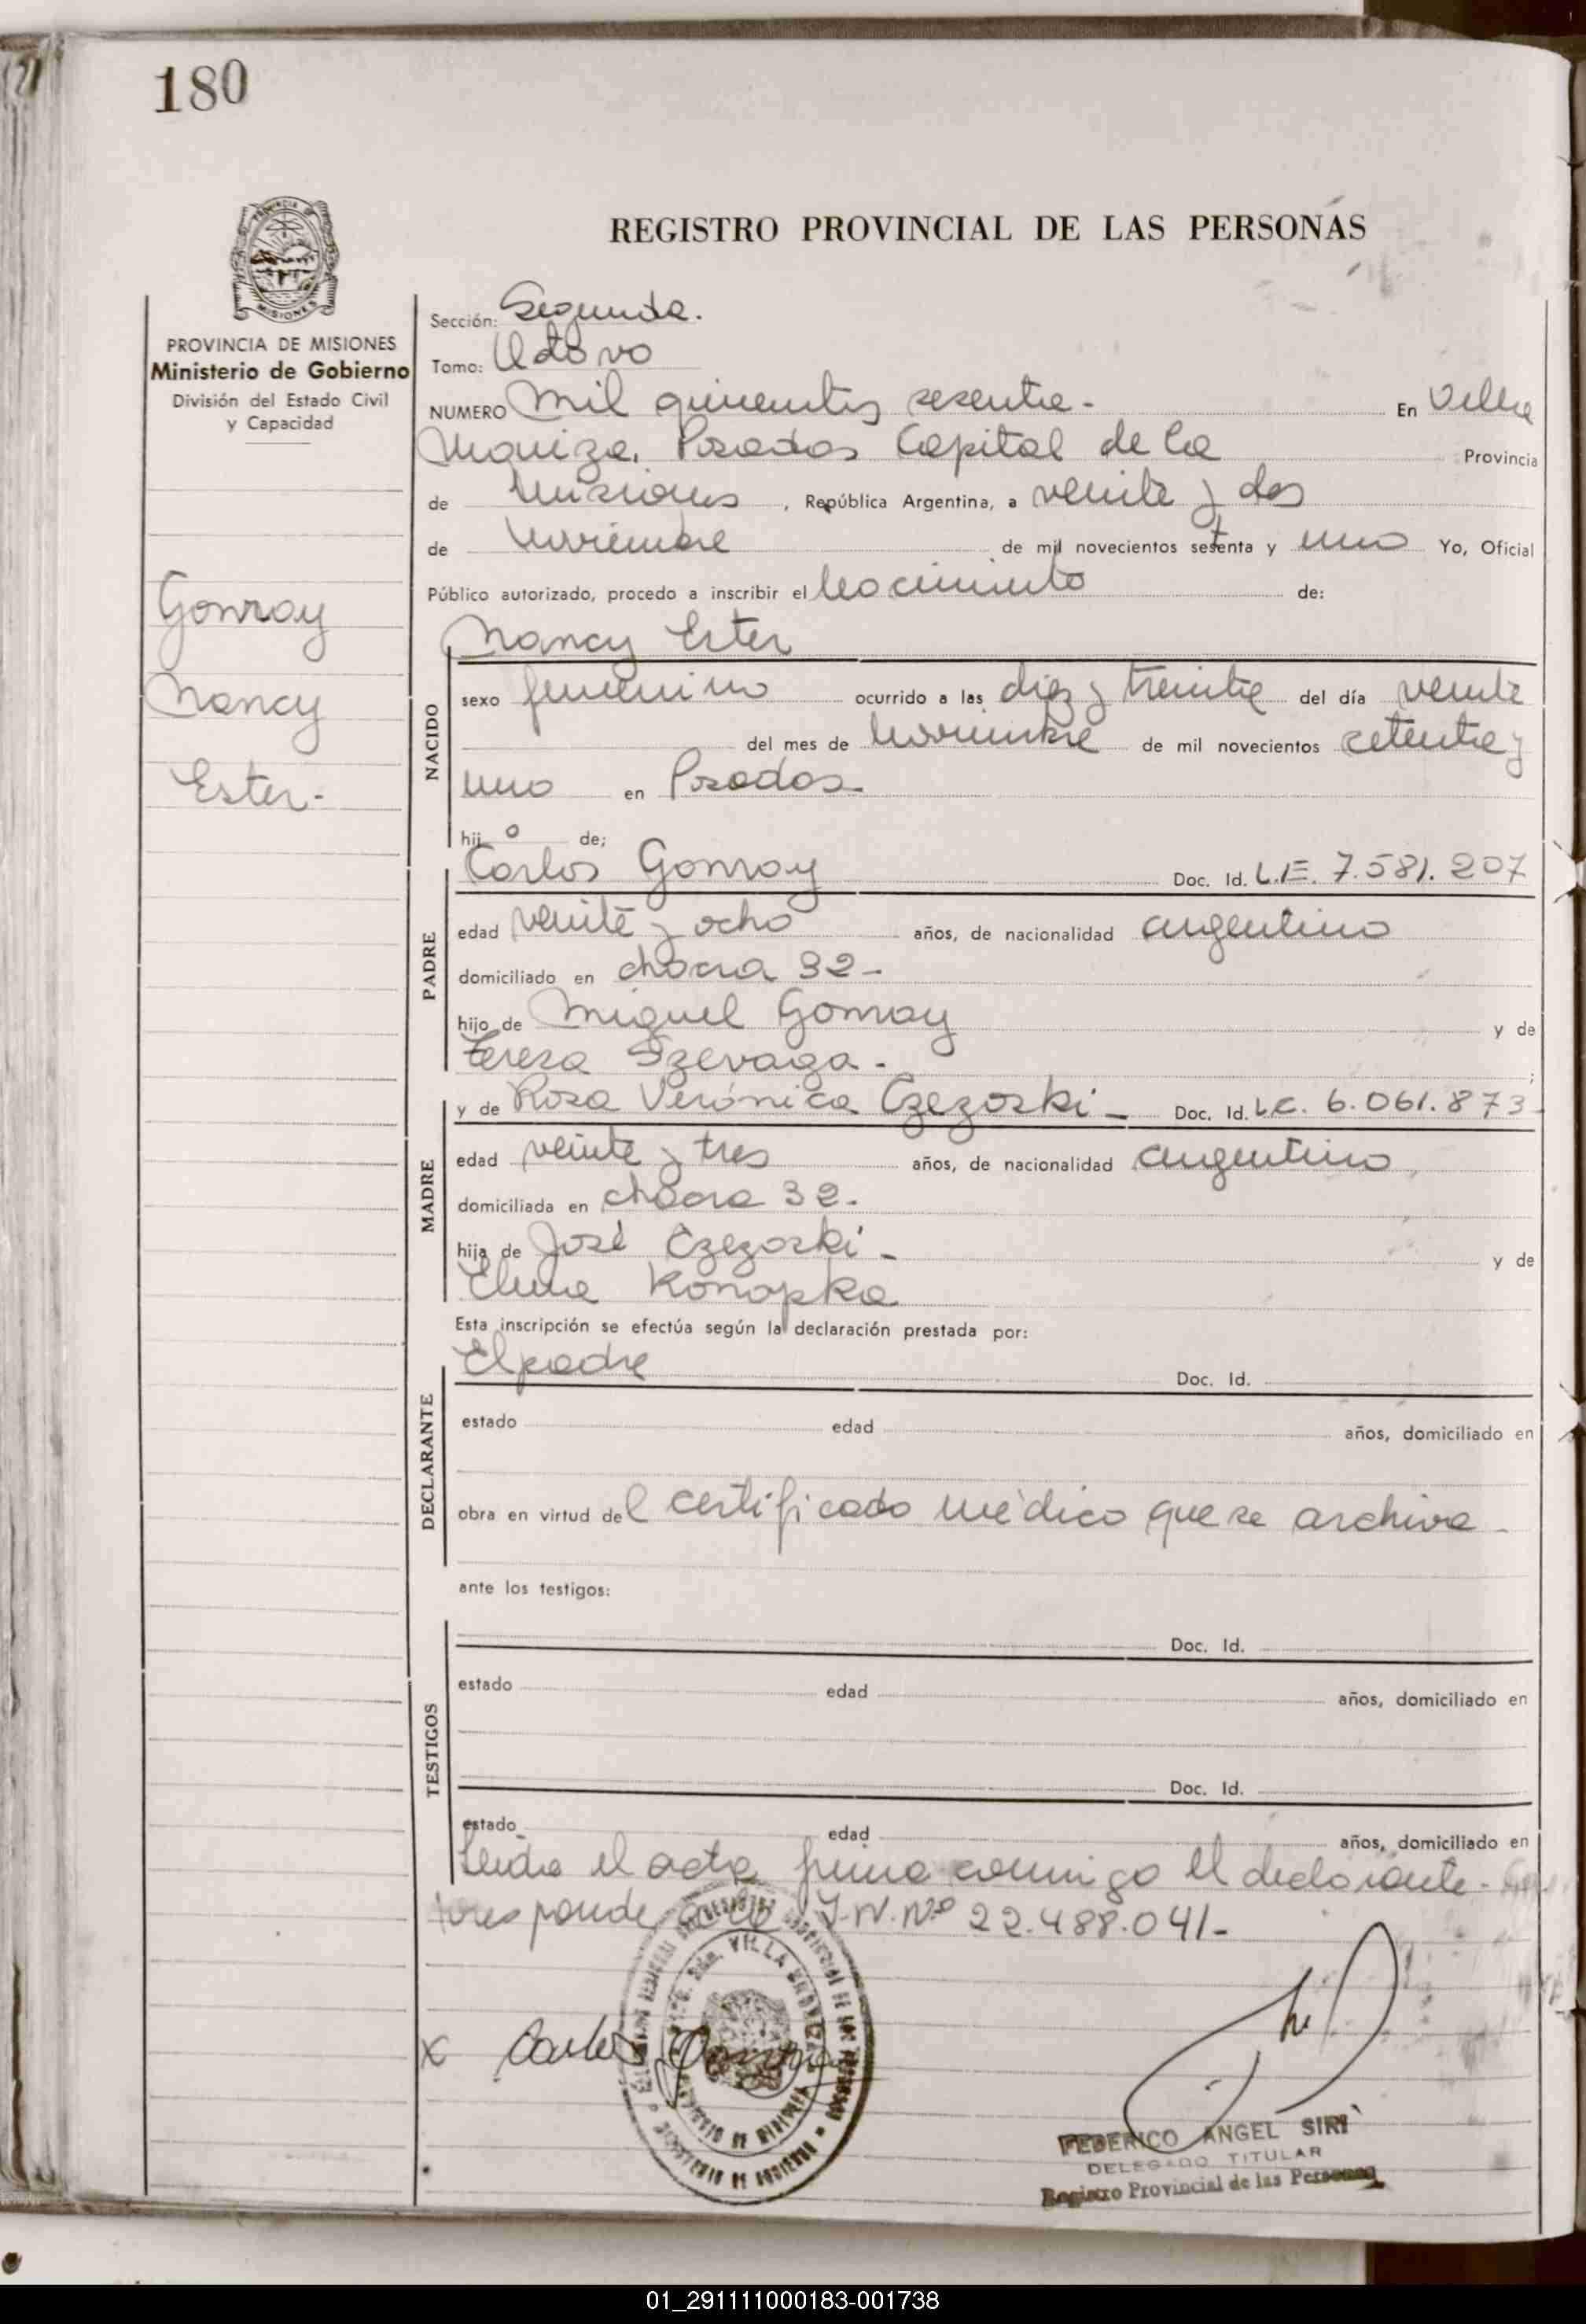 180
PROVINCIA DE
MISIONES
PROVINCIA DE MISIONES
Ministerio de Gobierno
División del Estado Civil
y Capacidad
Gonroy
Nancy
Ester-
REGISTRO PROVINCIAL DE LAS PERSONAS
Sección: Segunda.
Tomo: Octavo
NUMERO Mil quinientos sesenta- En Villa
Urquiza, Posadas Capital de la Provincia
de Misiones, República Argentina, a veinte y dos
de Noviembre de mil novecientos setenta y uno Yo, Oficial
Público autorizado, procedo a inscribir el Nacimiento de:
Nancy Ester
NACIDO
sexo femenino ocurrido a las diez y treinta del día veinte
del mes de Noviembre de mil novecientos setenta y
uno en Posadas-
hij o de;
PADRE
Carlos Gonroy Doc. Id. L.E. 7.581.207
edad veinte y ocho años, de nacionalidad argentino
domiciliado en chacra 32-
hijo de Miguel Gonroy y de
Teresa Szevaga-
MADRE
y de Rosa Verónica Czezoski- Doc. Id. L.C. 6.061.873-
edad veinte y tres años, de nacionalidad argentino
domiciliada en chacra 32.
hija de José Czezoski- y de
Elena Konopka
Esta inscripción se efectúa según la declaración prestada por:
DECLARANTE
El padre Doc. Id.
estado edad años, domiciliado en
obra en virtud del certificado médico que se archiva-
ante los testigos:
TESTIGOS
Doc. Id.
estado edad años, domiciliado en
Doc. Id.
estado edad años, domiciliado en
Leida el acta firma conmigo el declarante-
responde a la I.N.Nº 22.488.041-
x Carlos
VILLA URQUIZA
MINISTERIO DE GOBIERNO
FEDERICO ANGEL SIRI
DELEGADO TITULAR
Registro Provincial de las Personas
01_291111000183-001738